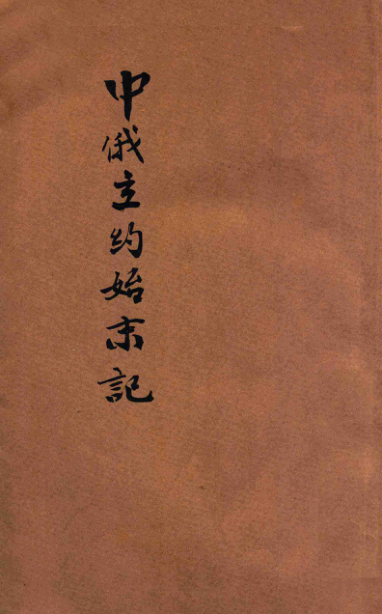 中俄立约始末記